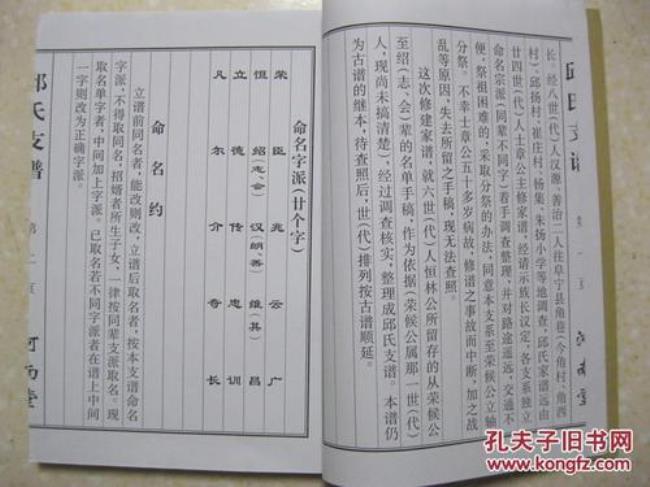 邱氏支谱 第一页 河南堂
长。经八世(代)人汉源、善治二人往阜宁县角巷(今角村、角西
村)、邱扬村、崔庄村、杨集、朱扬小学等地调查,邱氏家谱远由
廿四世(代)人士章公主修家谱,经请示族长议定,各支系独立
命名宗派(同辈不同字)着手调查整理,并对路途遥远,交通不
便,祭祖困难的,采取分祭的办法,同意本支系至荣候公立轴
分祭。不幸士章公五十多岁病故,修谱之事故而中断,加之战
乱等原因,失去所留之手稿,现无法查照。
这次修建家谱,就六世(代)人恒林公所留存的从荣候公
至绍(志、会)辈的名单手稿,作为依据(荣候公属那一世(代)
人,现尚未搞清楚),经过调查核实,整理成邱氏支谱。本谱仍
为古谱的继本,待查照后,世(代)排列按古谱顺延。
命名字派(廿个字)
荣臣兆云广
恒绍(志、会)汉(朗、善)维(其)昌
立德传忠训
凡尔介奇长
命名约
立谱前同名者,能改则改,立谱后取名者,按本支谱命名
字派,不得取同名,招婿者所生子女,一律按同辈支派取名。现
取名单字者,中间加上字派。已取名若不同字派者在谱上中间
一字则改为正确字派。
邱氏支谱 第二页 河南堂
孔夫子旧书网
www.kongfz.com